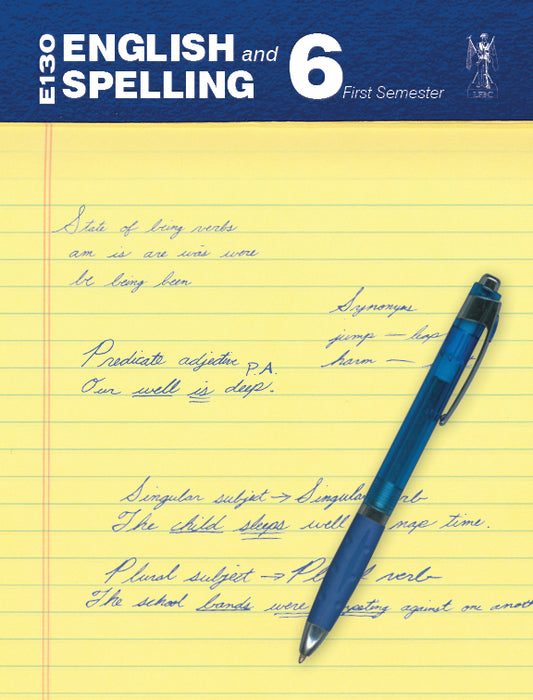 E130
ENGLISH and
SPELLING
6
First Semester
LFBC
State of being verbs
am is are was were
be being been
Synonyms
jump — leap
harm —
Predicate adjective P.A.
Our well is deep.
Singular subject → Singular
The child sleeps well nap time.
Plural subject → verb
The school bands were against one